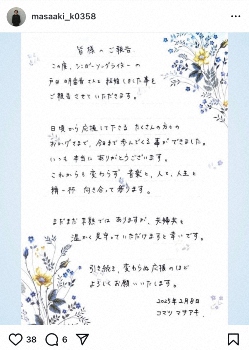 masaaki_k0358
皆様へご報告
この度、シンガーソングライターの
戸田明香李さんと結婚しました事を
ご報告させていただきます。
日頃から応援して下さる たくさんの方々の
おかげさまで、今日まで歩んでくる事ができました。
いつも本当にありがとうございます。
これからも変わらず 音楽と、人と、人生と
精一杯 向き合って参ります。
まだまだ未熟ではありますが、夫婦共々
温かく見守っていただけますと幸いです。
引き続き、変わらぬ応援のほど
よろしくお願いいたします。
2025年2月8日
コマツ マサアキ
38 6